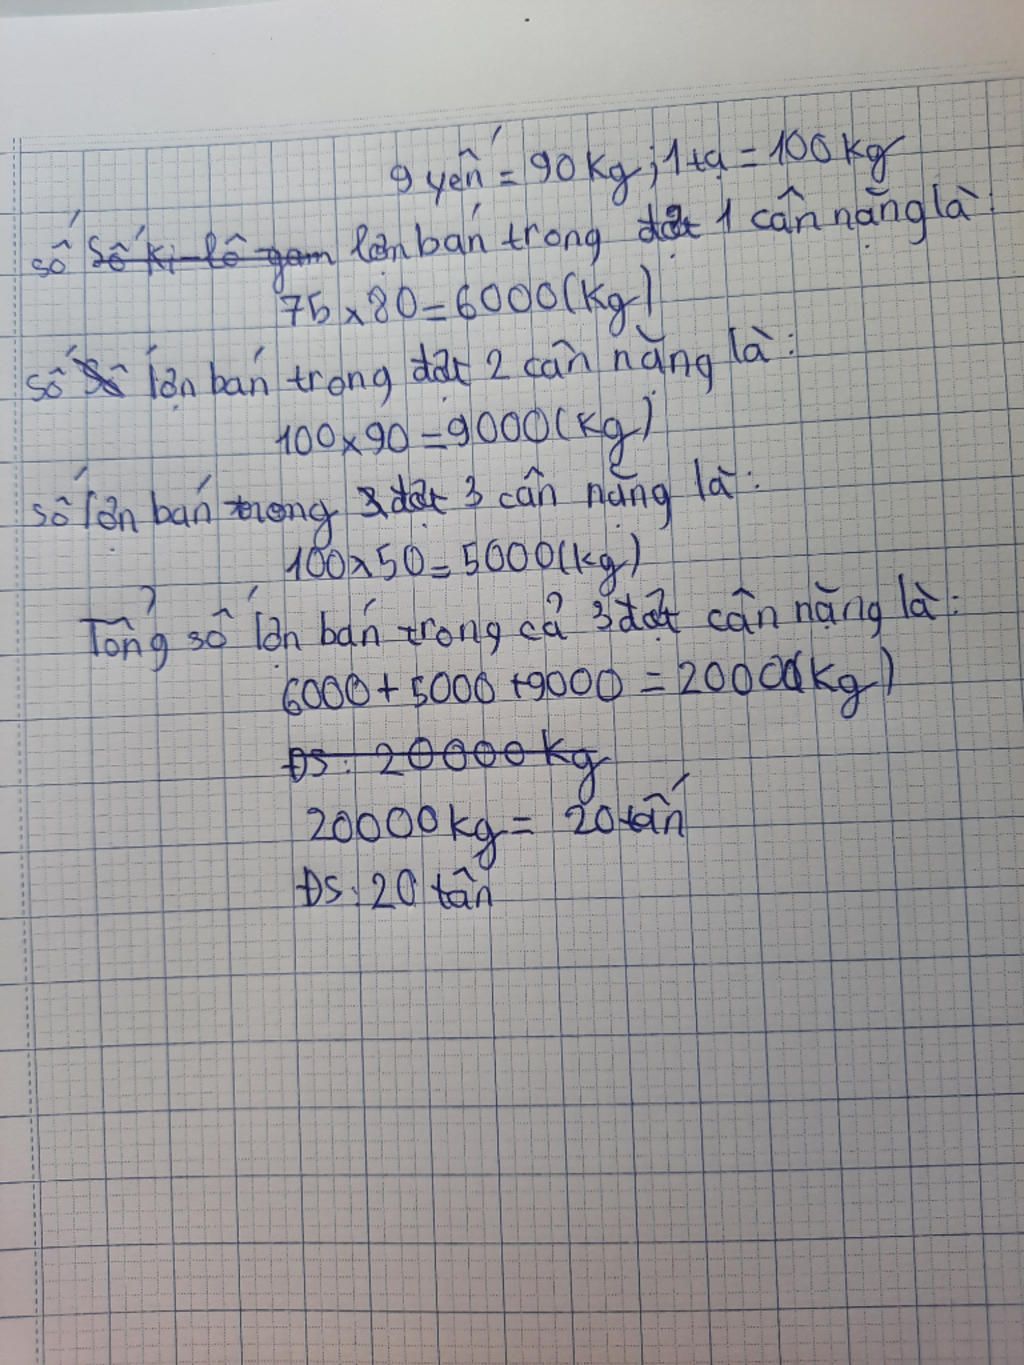 9 yến = 90 kg; 1 tạ = 100 kg
số số ki-lô gam lợn bán trong đợt 1 cân nặng là:
75 x 80 = 6000 (kg)
số số lợn bán trong đợt 2 cân nặng là:
100 x 90 = 9000 (kg)
số lợn bán trong 3 đợt 3 cân nặng là:
100 x 50 = 5000 (kg)
Tổng số lợn bán trong cả 3 đợt cân nặng là:
6000 + 5000 + 9000 = 20000 (kg)
ĐS: 20000 kg
20000 kg = 20 tấn
ĐS: 20 tấn